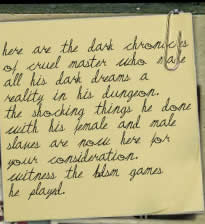 here are the dark chronicles
of cruel master who have
all his dark dreams a
reality in his dungeon.
the shocking things he done
with his female and male
slaves are now here for
your consideration.
witness the bdsm games
he played.